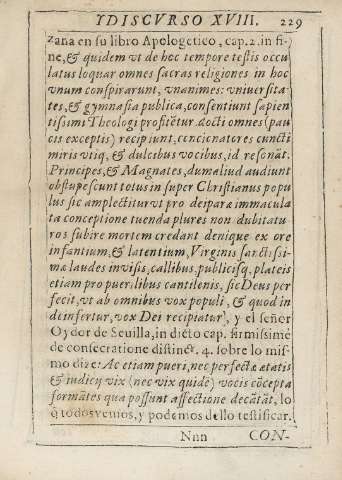 YDISCVRSO XVIII. 229
zana en su libro Apologetico, cap. 2. in fi-
ne, & quidem vt de hoc tempore testis occu
latus loquar omnes sacras religiones in hoc
vnum conspirarunt, vnanimes: vniuersita-
tes, & gymnasia publica, consentiunt sapien
tissimi Theologi profitẽtur docti omnes (pau
cis exceptis) recipiunt, concionatores cuncti
miris vtiq, & dulcibus vocibus, id resonãt.
Principes, & Magnates, dum aliud audiunt
obstupescunt totus in super Christianus popu
lus sic amplectitur vt pro deiparæ immacula
ta conceptione tuenda plures non dubitatu
ros subire mortem credant denique ex ore
infantium, & latentium, Virginis sanctissi-
mæ laudes inuisis, callibus, publicisq, plateis
etiam pro pueribilibus cantilenis, sic Deus per
fecit, vt ab omnibus vox populi, & quod in
de infertur, vox Dei recipiatur, y el señor
Oydor de Seuilla, in dicto cap. firmissimè
de consecratione distinct. 4. sobre lo mis-
mo dize: Ac etiam pueri, nec perfectæ ætatis
& iudicij vix (nec vix quidẽ) vocis cõcepta
formãtes qua possunt affectione decãtãt, lo
q̃ todos vemos, y podemos dello testificar.
Nnn CON-